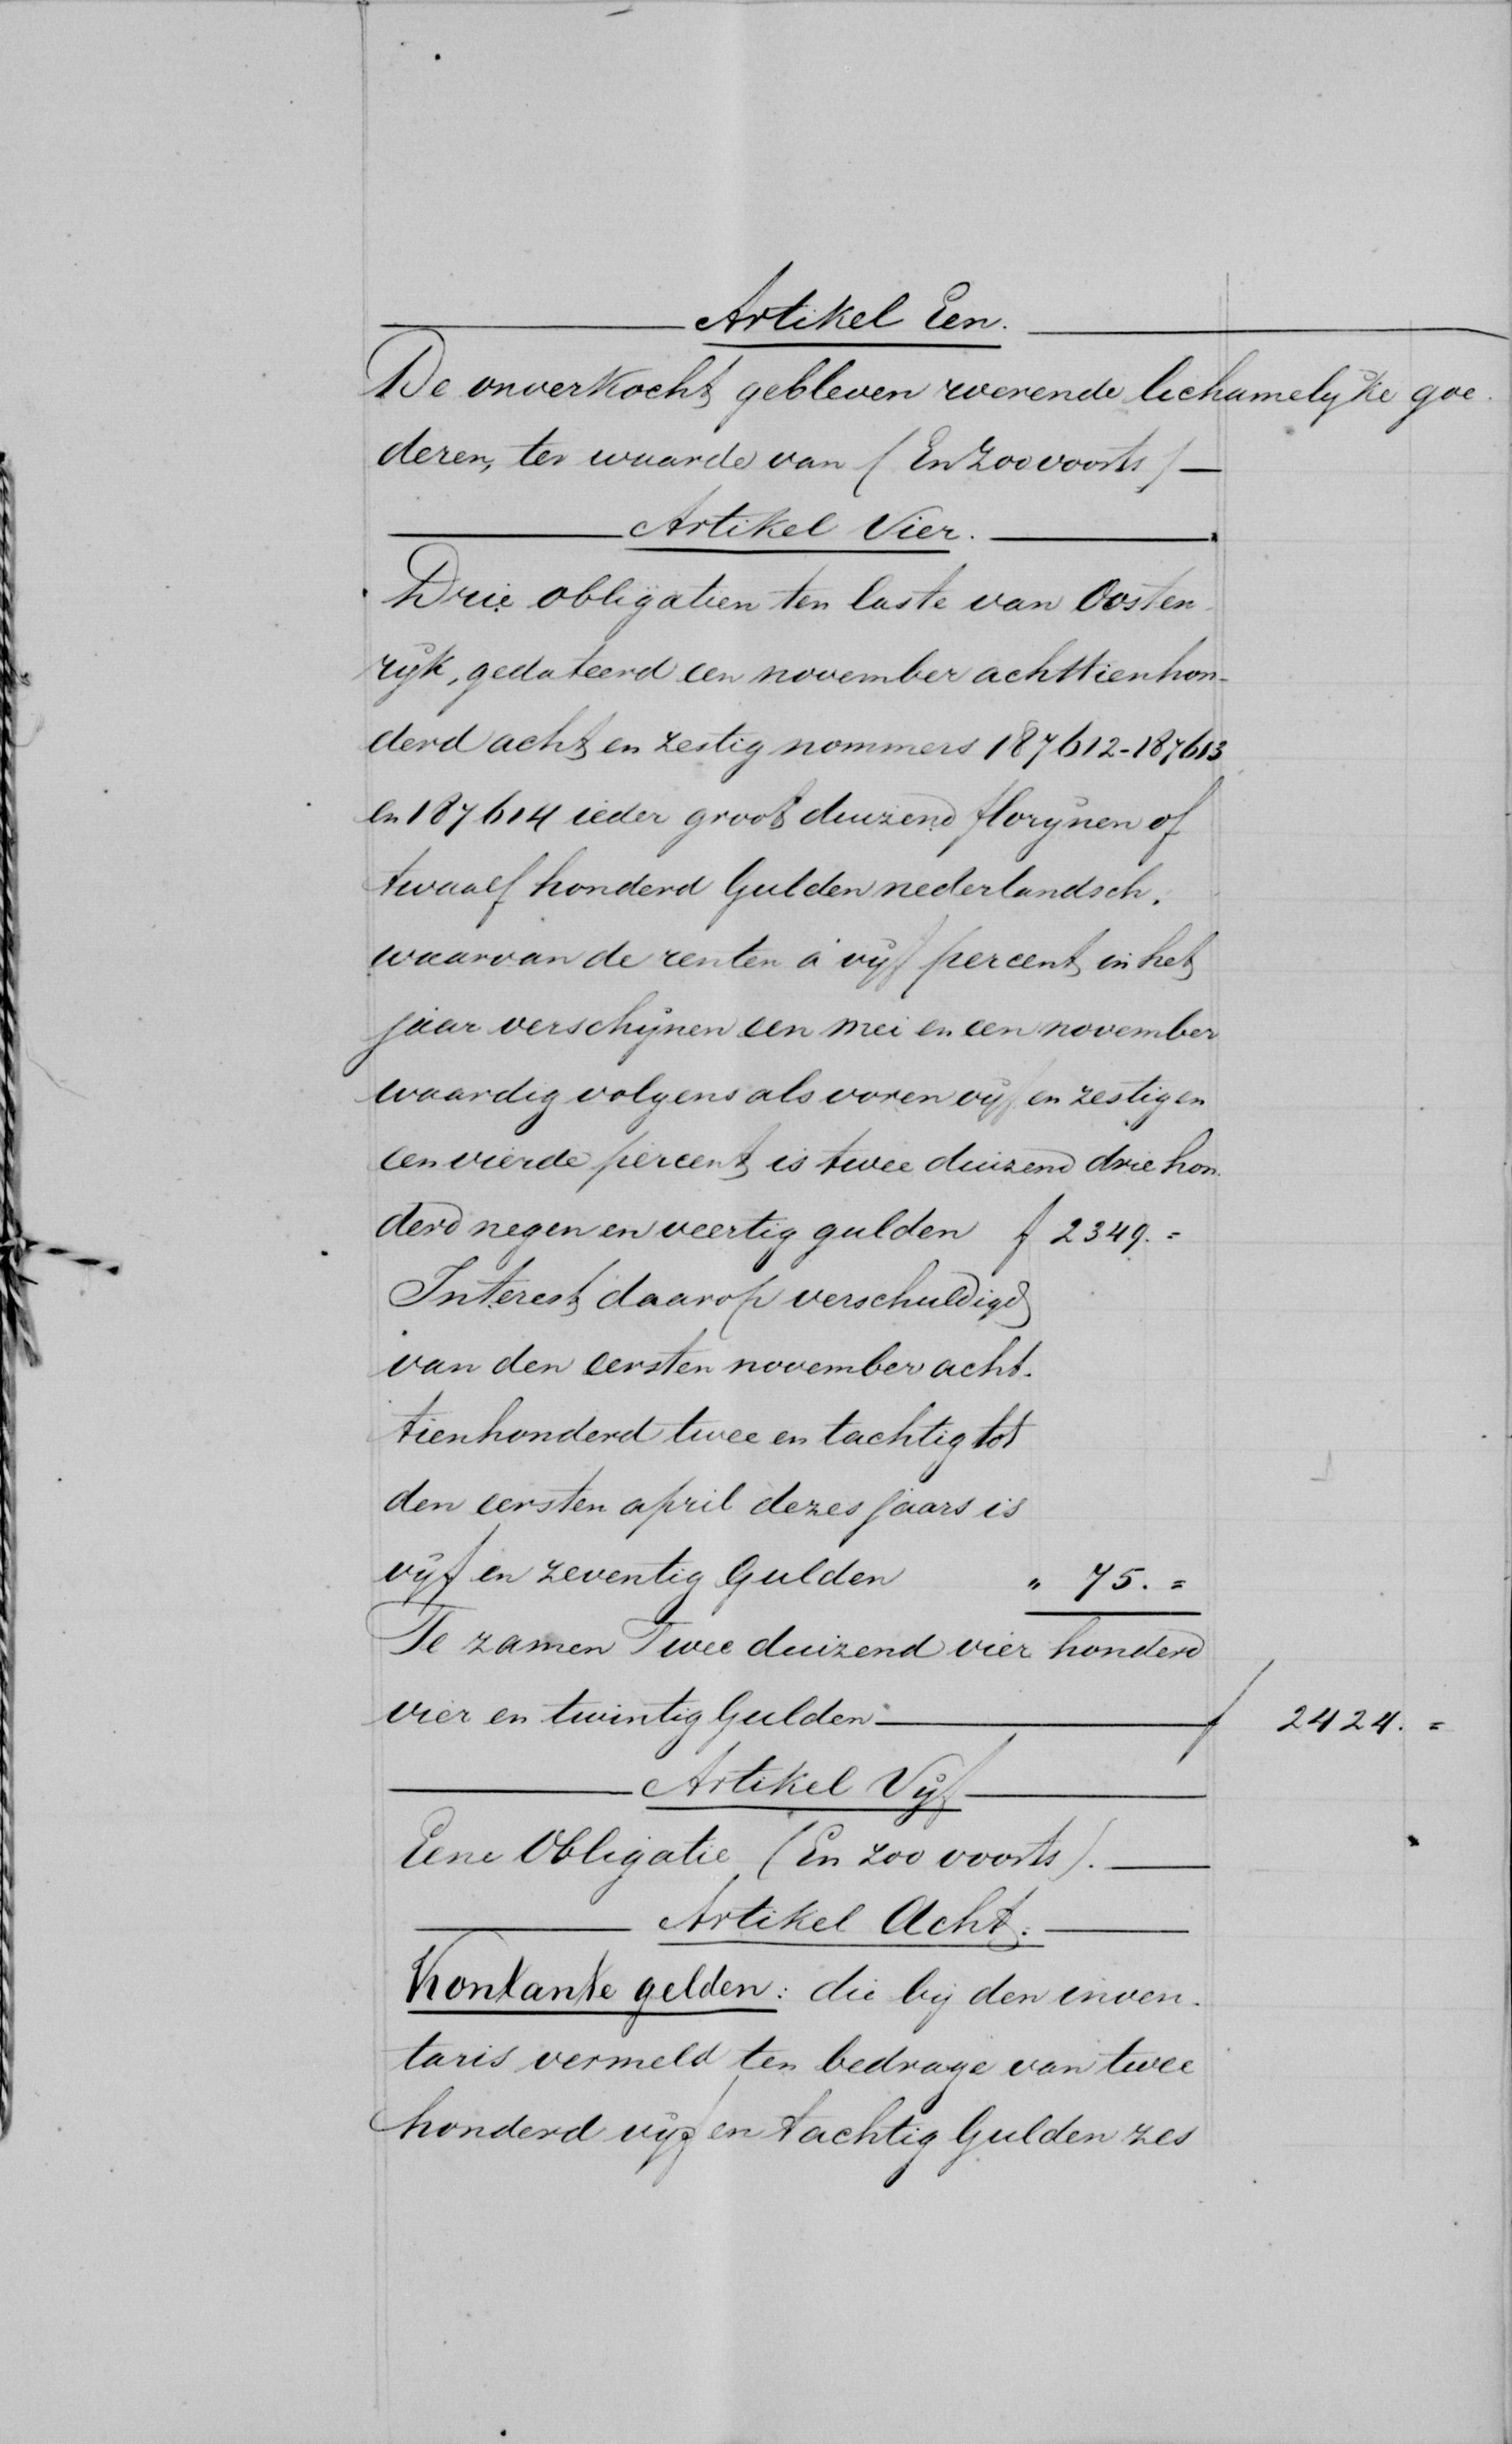 Artikel Een.
De onverkocht gebleven roerende lichamelijke goe-
deren, ter waarde van (En zoo voorts)
Artikel Vier.
Drie obligatien ten laste van Oosten-
rijk, gedateerd een november achttienhon-
derd acht en zestig nommers 187612-187613
en 187614 ieder groot duizend florijnen of
twaalf honderd Gulden nederlandsch,
waarvan de renten à vijf percent in het
jaar verschijnen een mei en een november
waardig volgens als voren vijf en zestig en
een vierde percent is twee duizend drie hon-
derd negen en veertig gulden f 2349.=
Interest daarop verschuldigd
van den eersten november acht-
tienhonderd twee en tachtig tot
den eersten april dezes jaars is
vijf en zeventig Gulden " 75.=
Te zamen Twee duizend vier honderd
vier en twintig Gulden f 2424.=
Artikel Vijf
Eene Obligatie (En zoo voorts).
Artikel Acht.
Kontante gelden: die bij den inven-
taris vermeld ten bedrage van twee
honderd vijf en tachtig Gulden zes